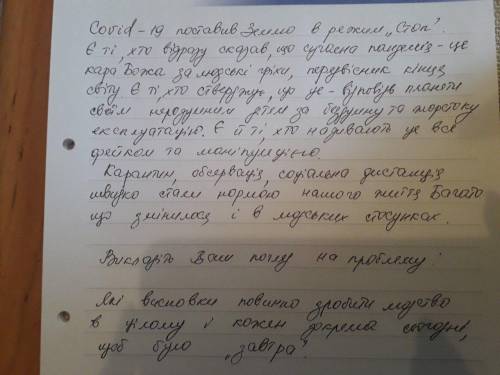 Covid-19 поставив Землю в режим „Стоп".
Є ті, хто відразу сказав, що сучасна пандемія - це
кара Божа за людські гріхи, передвісник кінця
світу. Є ті, хто стверджує, що це - відповідь планети
своїм нерозумним дітям за бездумну та жорстоку
експлуатацію. Є й ті, хто називають це все
фейком та маніпуляцією.
Карантин, обсервація, соціальна дистанція
швидко стали нормою нашого життя. Багато
що змінилося і в людських стосунках.
Викладіть Ваш погляд на проблему:
Які висновки повинно зробити людство
в цілому і кожен зокрема сьогодні,
щоб було „завтра"?